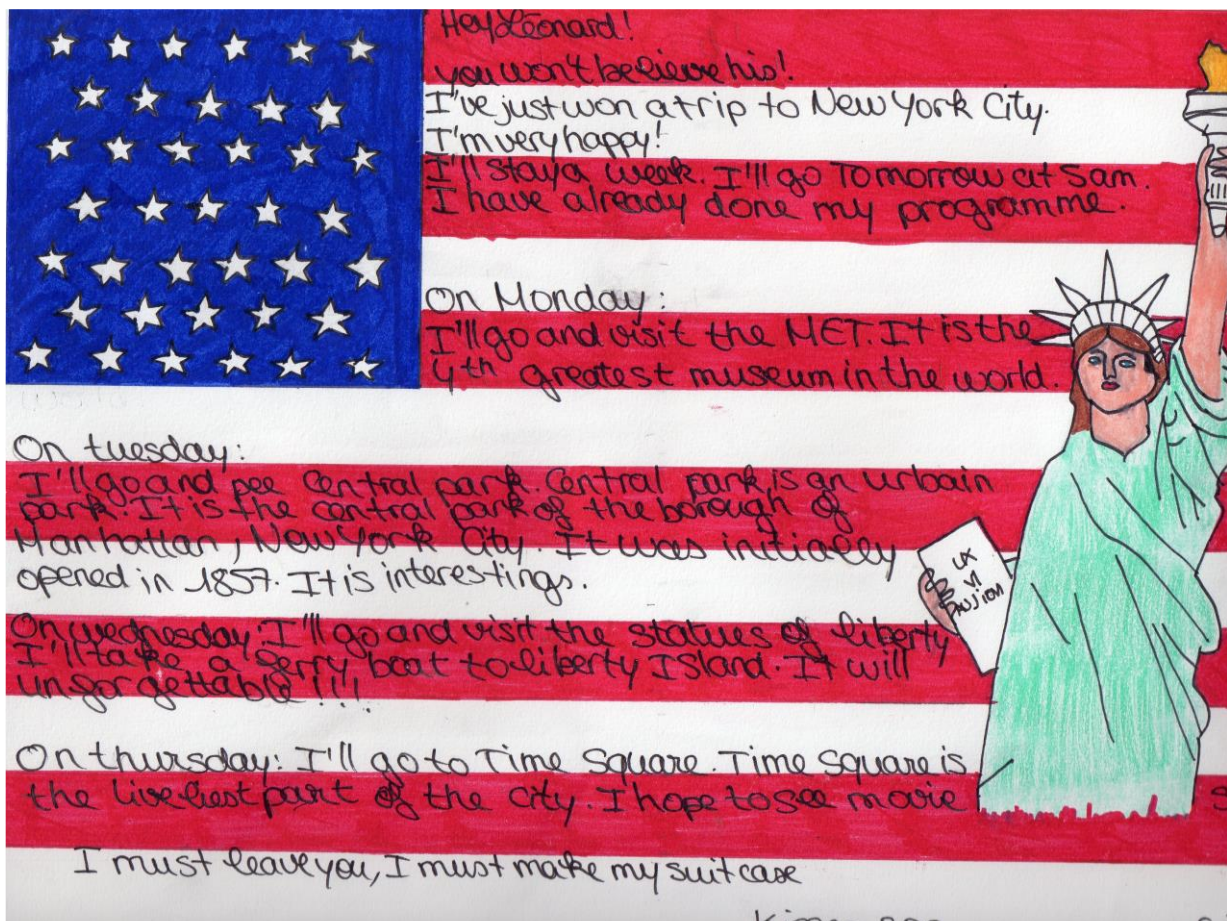 Hey Léonard!
you won't believe his!
I've just won a trip to New York City.
I'm very happy!
I'll stay a week. I'll go Tomorrow at 5am.
I have already done my programme.
On Monday:
I'll go and visit the MET. It is the
4th greatest museum in the world.
On tuesday:
I'll go and see Central park. Central park is an urbain
park. It is the central park of the borough of
Manhattan, New York City. It was initially
opened in 1857. It is interestings.
On wednesday: I'll go and visit the statues of liberty
I'll take a ferry boat to liberty Island. It will
unforgettable!!!
On thursday: I'll go to Time Square. Time Square is
the liveliest part of the city. I hope to see movie
I must leave you, I must make my suitcase